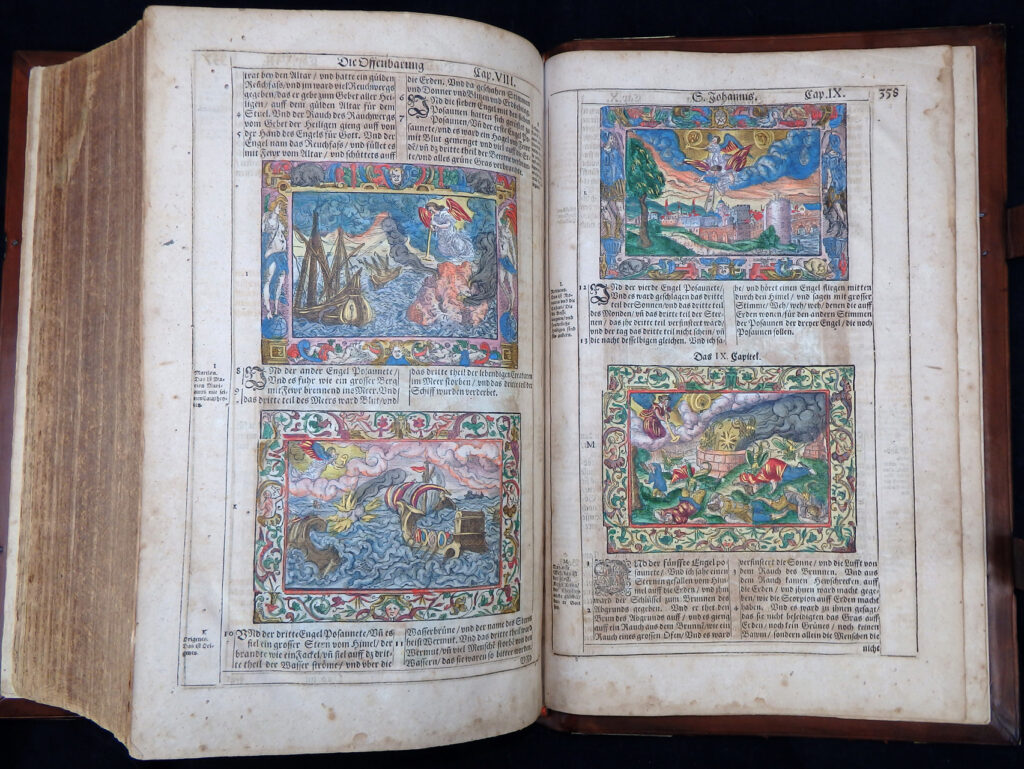 Die Offenbarung
Cap. VIII.
trat bey den Altar / und hatte ein gülden
Reuchfaß / und im ward viel Reuchwergs
gegeben / das er gebe zum Gebet aller Hei-
ligen / auff dem gülden Altar für dem
4 Stuel. Und der Rauch des Rauchwergs
vom Gebet der Heiligen gieng auff von
5 der Hand des Engels für Gott. Und der
Engel nam das Reuchfaß / und füllet es
mit Fewr vom Altar / und schüttets auff
die Erden. Und da geschahen Stimmen
und Donner und Blitzen und Erdbebung
6 Und die sieben Engel mit den
Posaunen hatten sich gerüstet zu
7 Posaunen / Uñ der erste Engel Po-
saunete / und es ward ein Hagel und Fewr
mit Blut gemenget und fiel auff die Er-
de / uñ dz dritte theil der Bewme verbrante
te / und alles grüne Gras verbrante
8 UNd der ander Engel Posaunete /
Und es fuhr wie ein grosser Berg
9 mit Fewr brennend ins Meer. Und
das dritte teil des Meers ward Blut / und
das dritte theil der lebendigen Creaturen
im Meer storben / und das dritte teil der
Schiff wurden verderbet.
10 UNd der dritte Engel Posaunete / Uñ es
fiel ein grosser Stern vom Himel / der
brandte wie ein Fackel / uñ fiel auff dz drit-
te theil der Wasser ströme / und über die
Wasserbrüne / und der name des Sterns
11 heist Wermut. Und das dritte theil ward
Wermut / uñ viel Menschẽ storben von den
Wassern / das sie waren so bitter worden.
S. Johannis.
Cap. IX.
358
12 UNd der vierde Engel Posaunete /
Und es ward geschlagen das dritte
teil der Sonnen / und das dritte teil
des Monden / uñ das dritte teil der Ster-
nen / das ihr dritte teil verfinstert ward /
und der tag das dritte teil nicht schein / uñ
13 die nacht desselbigen gleichen. Und ich sa-
he / und höret einen Engel fliegen mitten
durch den Himel / und sagen mit grosser
Stimme / Weh / weh / weh / denen die auff
Erden wonen / für den andern Stimmen
der Posaunen der dreyer Engel / die noch
Posaunen sollen.
Das IX. Capitel.
M
1 UNd der fünffte Engel po-
saunete / Und ich sahe einen
Sternen gefallen vom Him-
mel auff die Erden / und im
ward der Schlüssel zum Brunnen des
2 Abgrunds gegeben. Und er thet den
Brun des Abgrunds auff / und es gieng
auff ein Rauch aus dem Brunn / wie ein
Rauch eines grossen Ofen / Und es ward
verfinstert die Sonne / und die Lufft von
3 dem Rauch des Brunnen. Und aus
dem Rauch kamen Hewschrecken auff
die Erden / und ihnen ward macht gege-
ben / wie die Scorpion auff Erden macht
4 haben. Und es ward zu ihnen gesagt /
das sie nicht beleidigten das Gras auff
Erden / noch kein Grünes / noch keinen
Bawm / sondern allein die Menschen die
nicht